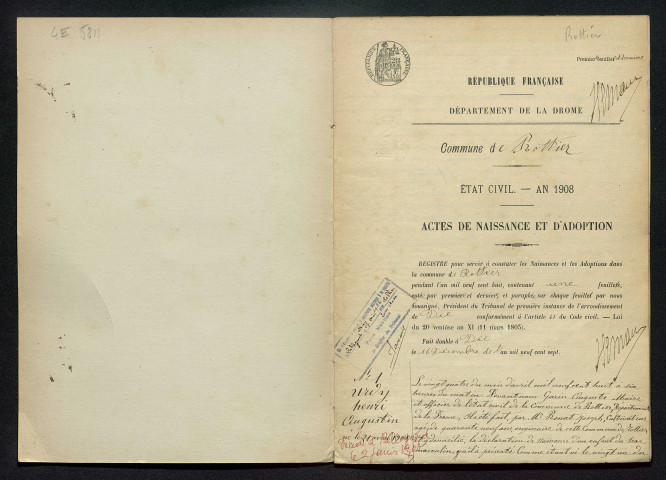 4E 5811
Rottier
Premier feuillet
RÉPUBLIQUE FRANÇAISE
DÉPARTEMENT DE LA DROME
Commune de Rottier
ÉTAT CIVIL. — AN 1908
ACTES DE NAISSANCE ET D'ADOPTION
REGISTRE pour servir à constater les Naissances et les Adoptions dans
la commune de Rottier
pendant l'an mil neuf cent huit, contenant une feuillets,
coté par premier et dernier, et paraphé sur chaque feuillet par nous
soussigné, Président du Tribunal de première instance de l'arrondissement
de Die conformément à l'article 41 du Code civil. — Loi
du 20 ventôse an XI (11 mars 1803).
Fait double à Die
le 16 Décembre de l'an mil neuf cent sept.
N° 1
henri
Augustin
Le vingt quatre du mois d'avril mil neuf cent huit à six
heures du matin Pardevant nous Garin Auguste Maire
et officier de l'état civil de la Commune de Rottier, Département
de la Drome,
agé de quarante neuf ans, originaire de cette Commune de Rottier
y domicilié, la déclaration de naissance d'un enfant du sexe
masculin, qu'il a présenté comme étant né le vingt un du